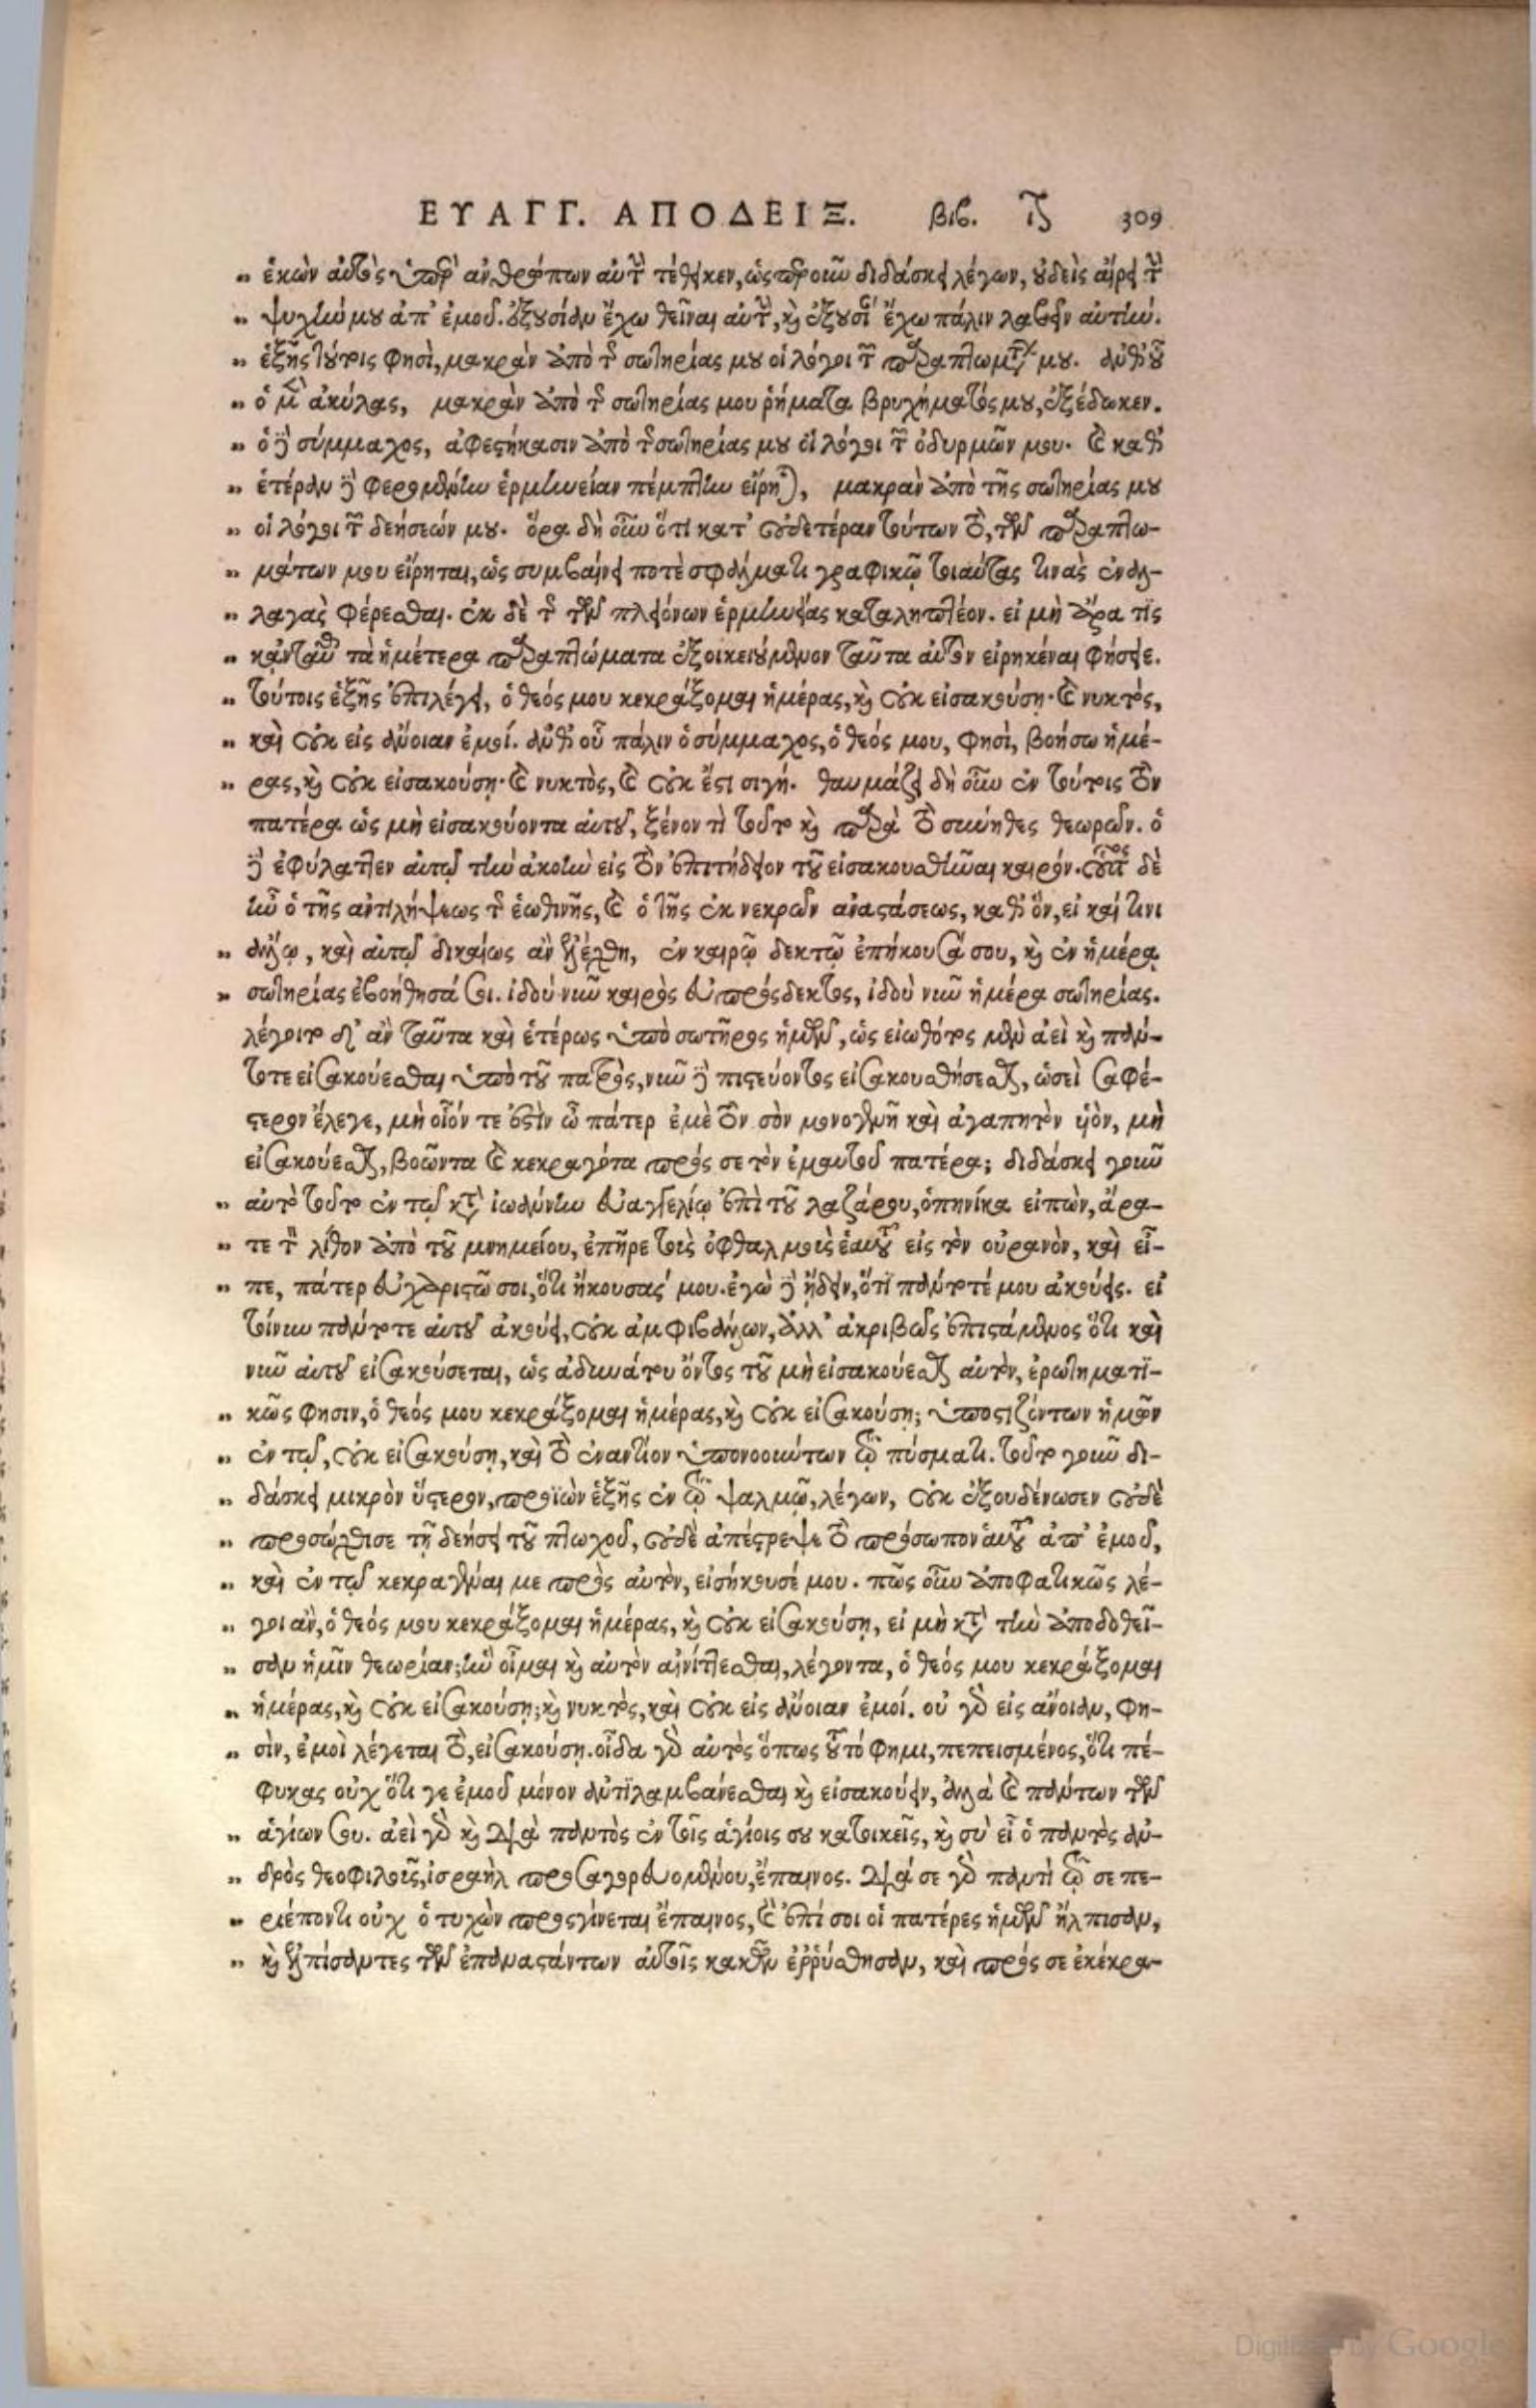 ΕΥΑΓΓ. ΑΠΟΔΕΙΞ. βιβ. ιζ 309
„ ἑκὼν αὐτὸς ὑπὲρ ἀνθρώπων αὐτὴν τέθεικεν, ὡς προιὼν διδάσκει λέγων, οὐδεὶς αἴρει τὴν
„ ψυχήν μου ἀπ' ἐμοῦ. ἐξουσίαν ἔχω θεῖναι αὐτὴν, καὶ ἐξουσίαν ἔχω πάλιν λαβεῖν αὐτήν.
„ ἑξῆς τούτοις φησὶ, μακρὰν ἀπὸ τῆς σωτηρίας μου οἱ λόγοι τῶν παραπτωμάτων μου. ἀνθ' οὗ
„ ὁ μὲν ἀκύλας, μακρὰν ἀπὸ τῆς σωτηρίας μου ῥήματα βρυχήματός μου, ἐξέδωκεν.
„ ὁ δὲ σύμμαχος, ἀφεστήκασιν ἀπὸ τῆς σωτηρίας μου οἱ λόγοι τῶν ὀδυρμῶν μου. καὶ καθ'
„ ἑτέραν δὲ φερομένην ἑρμηνείαν πέμπτην εἴρηται, μακρὰν ἀπὸ τῆς σωτηρίας μου
„ οἱ λόγοι τῶν δεήσεών μου. ὅρα δὴ οὖν ὅτι κατ' οὐδετέραν τούτων τὸ, τῶν παραπτω-
„ μάτων μου εἴρηται, ὡς συμβαίνει ποτὲ σφάλματι γραφικῷ τοιαύτας τινὰς ἐναλ-
„ λαγὰς φέρεσθαι. ἐκ δὲ τῆς τῶν πλειόνων ἑρμηνείας καταληπτέον. εἰ μὴ ἄρα τὶς
„ κἀνταῦθα τὰ ἡμέτερα παραπτώματα ἐξοικειούμενον ταῦτα αὐτὸν εἰρηκέναι φήσειε.
„ τούτοις ἑξῆς ἐπιλέγει, ὁ θεός μου κεκράξομαι ἡμέρας, καὶ οὐκ εἰσακούσῃ· καὶ νυκτός,
„ καὶ οὐκ εἰς ἄνοιαν ἐμοί. ἀνθ' οὗ πάλιν ὁ σύμμαχος, ὁ θεός μου, φησὶ, βοήσω ἡμέ-
„ ρας, καὶ οὐκ εἰσακούσῃ· καὶ νυκτὸς, καὶ οὐκ ἔστι σιγή. θαυμάζει δὴ οὖν ἐν τούτοις τὸν
πατέρα ὡς μὴ εἰσακούοντα αὐτοῦ, ξένον τὶ τοῦτο καὶ παρὰ τὸ σύνηθες θεωρῶν. ὁ
δὲ ἐφύλαττεν αὐτῷ τὴν ἀκοὴν εἰς τὸν ἐπιτήδειον τοῦ εἰσακουσθῆναι καιρόν. οὗτος δὲ
ἦν ὁ τῆς ἀντιλήψεως τῆς ἑωθινῆς, καὶ ὁ τῆς ἐκ νεκρῶν ἀναστάσεως, καθ' ὅν, εἰ καί τινι
„ ἄλλῳ, καὶ αὐτῷ δικαίως ἂν λέλεχθη, ἐν καιρῷ δεκτῷ ἐπήκουσά σου, καὶ ἐν ἡμέρᾳ
„ σωτηρίας ἐβοήθησά σοι. ἰδοὺ νῦν καιρὸς εὐπρόσδεκτος, ἰδοὺ νῦν ἡμέρα σωτηρίας.
λέγοιτο δ' ἂν ταῦτα καὶ ἑτέρως ὑπὸ σωτῆρος ἡμῶν, ὡς εἰωθότος μὲν ἀεὶ καὶ πάν-
τοτε εἰσακούεσθαι ὑπὸ τοῦ πατρὸς, νῦν δὲ πιστεύοντος εἰσακουσθήσεσθαι, ὡσεὶ σαφέ-
στερον ἔλεγε, μὴ οἷόν τε ἐστὶν ὦ πάτερ ἐμὲ τὸν σὸν μονογενῆ καὶ ἀγαπητὸν υἱὸν, μὴ
εἰσακούεσθαι, βοῶντα καὶ κεκραγότα πρός σε τὸν ἐμαυτοῦ πατέρα; διδάσκει γοῦν
„ αὐτὸ τοῦτο ἐν τῷ κατὰ ἰωάννην εὐαγγελίῳ ἐπὶ τοῦ λαζάρου, ὁπηνίκα εἰπὼν, ἄρα-
„ τε τὸν λίθον ἀπὸ τοῦ μνημείου, ἐπῆρε τοὺς ὀφθαλμοὺς ἑαυτοῦ εἰς τὸν οὐρανὸν, καὶ εἶ-
„ πε, πάτερ εὐχαριστῶ σοι, ὅτι ἤκουσάς μου. ἐγὼ δὲ ᾔδειν, ὅτι πάντοτέ μου ἀκούεις. εἰ
τοίνυν πάντοτε αὐτοῦ ἀκούει, οὐκ ἀμφιβάλλων, ἀλλ' ἀκριβῶς ἐπιστάμενος ὅτι καὶ
νῦν αὐτοῦ εἰσακούσεται, ὡς ἀδυνάτου ὄντος τοῦ μὴ εἰσακούεσθαι αὐτὸν, ἐρωτηματι-
„ κῶς φησιν, ὁ θεός μου κεκράξομαι ἡμέρας, καὶ οὐκ εἰσακούσῃ; ὑποστιζόντων ἡμῶν
„ ἐν τῷ, οὐκ εἰσακούσῃ, καὶ τὸ ἐναντίον ὑπονοούντων τῷ πύσματι. τοῦτο γοῦν δι-
„ δάσκει μικρὸν ὕστερον, προϊὼν ἑξῆς ἐν τῷ ψαλμῷ, λέγων, οὐκ ἐξουδένωσεν οὐδὲ
„ προσώχθισε τῇ δεήσει τοῦ πτωχοῦ, οὐδὲ ἀπέστρεψε τὸ πρόσωπον αὐτοῦ ἀπ' ἐμοῦ,
„ καὶ ἐν τῷ κεκραγέναι με πρὸς αὐτὸν, εἰσήκουσέ μου. πῶς οὖν ἀποφατικῶς λέ-
„ γοι ἂν, ὁ θεός μου κεκράξομαι ἡμέρας, καὶ οὐκ εἰσακούσῃ, εἰ μὴ κατὰ τὴν ἀποδοθεῖ-
„ σαν ἡμῖν θεωρίαν; ἣν οἶμαι καὶ αὐτὸν αἰνίττεσθαι, λέγοντα, ὁ θεός μου κεκράξομαι
„ ἡμέρας, καὶ οὐκ εἰσακούσῃ; καὶ νυκτὸς, καὶ οὐκ εἰς ἄνοιαν ἐμοί. οὐ γὰρ εἰς ἄνοιαν, φη-
„ σὶν, ἐμοὶ λέγεται τὸ, εἰσακούσῃ. οἶδα γὰρ αὐτὸς ὅπως τοῦτό φημι, πεπεισμένος, ὅτι πέ-
φυκας οὐχ ὅτι γε ἐμοῦ μόνον ἀντιλαμβάνεσθαι καὶ εἰσακούειν, ἀλλὰ καὶ πάντων τῶν
„ ἁγίων σου. ἀεὶ γὰρ καὶ διὰ παντὸς ἐν τοῖς ἁγίοις σου κατοικεῖς, καὶ σὺ εἶ ὁ παντὸς ἀν-
„ δρὸς θεοφιλοῦς, ἰσραὴλ προσαγορευομένου, ἔπαινος. διά σε γὰρ παντὶ τῷ σε πε-
„ ριέποντι οὐχ ὁ τυχὼν προσγίνεται ἔπαινος, καὶ ἐπί σοι οἱ πατέρες ἡμῶν ἤλπισαν,
„ καὶ ἐλπίσαντες τῶν ἐπαναστάντων αὐτοῖς κακῶν ἐρρύσθησαν, καὶ πρός σε ἐκέκρα-
Digitized by Google